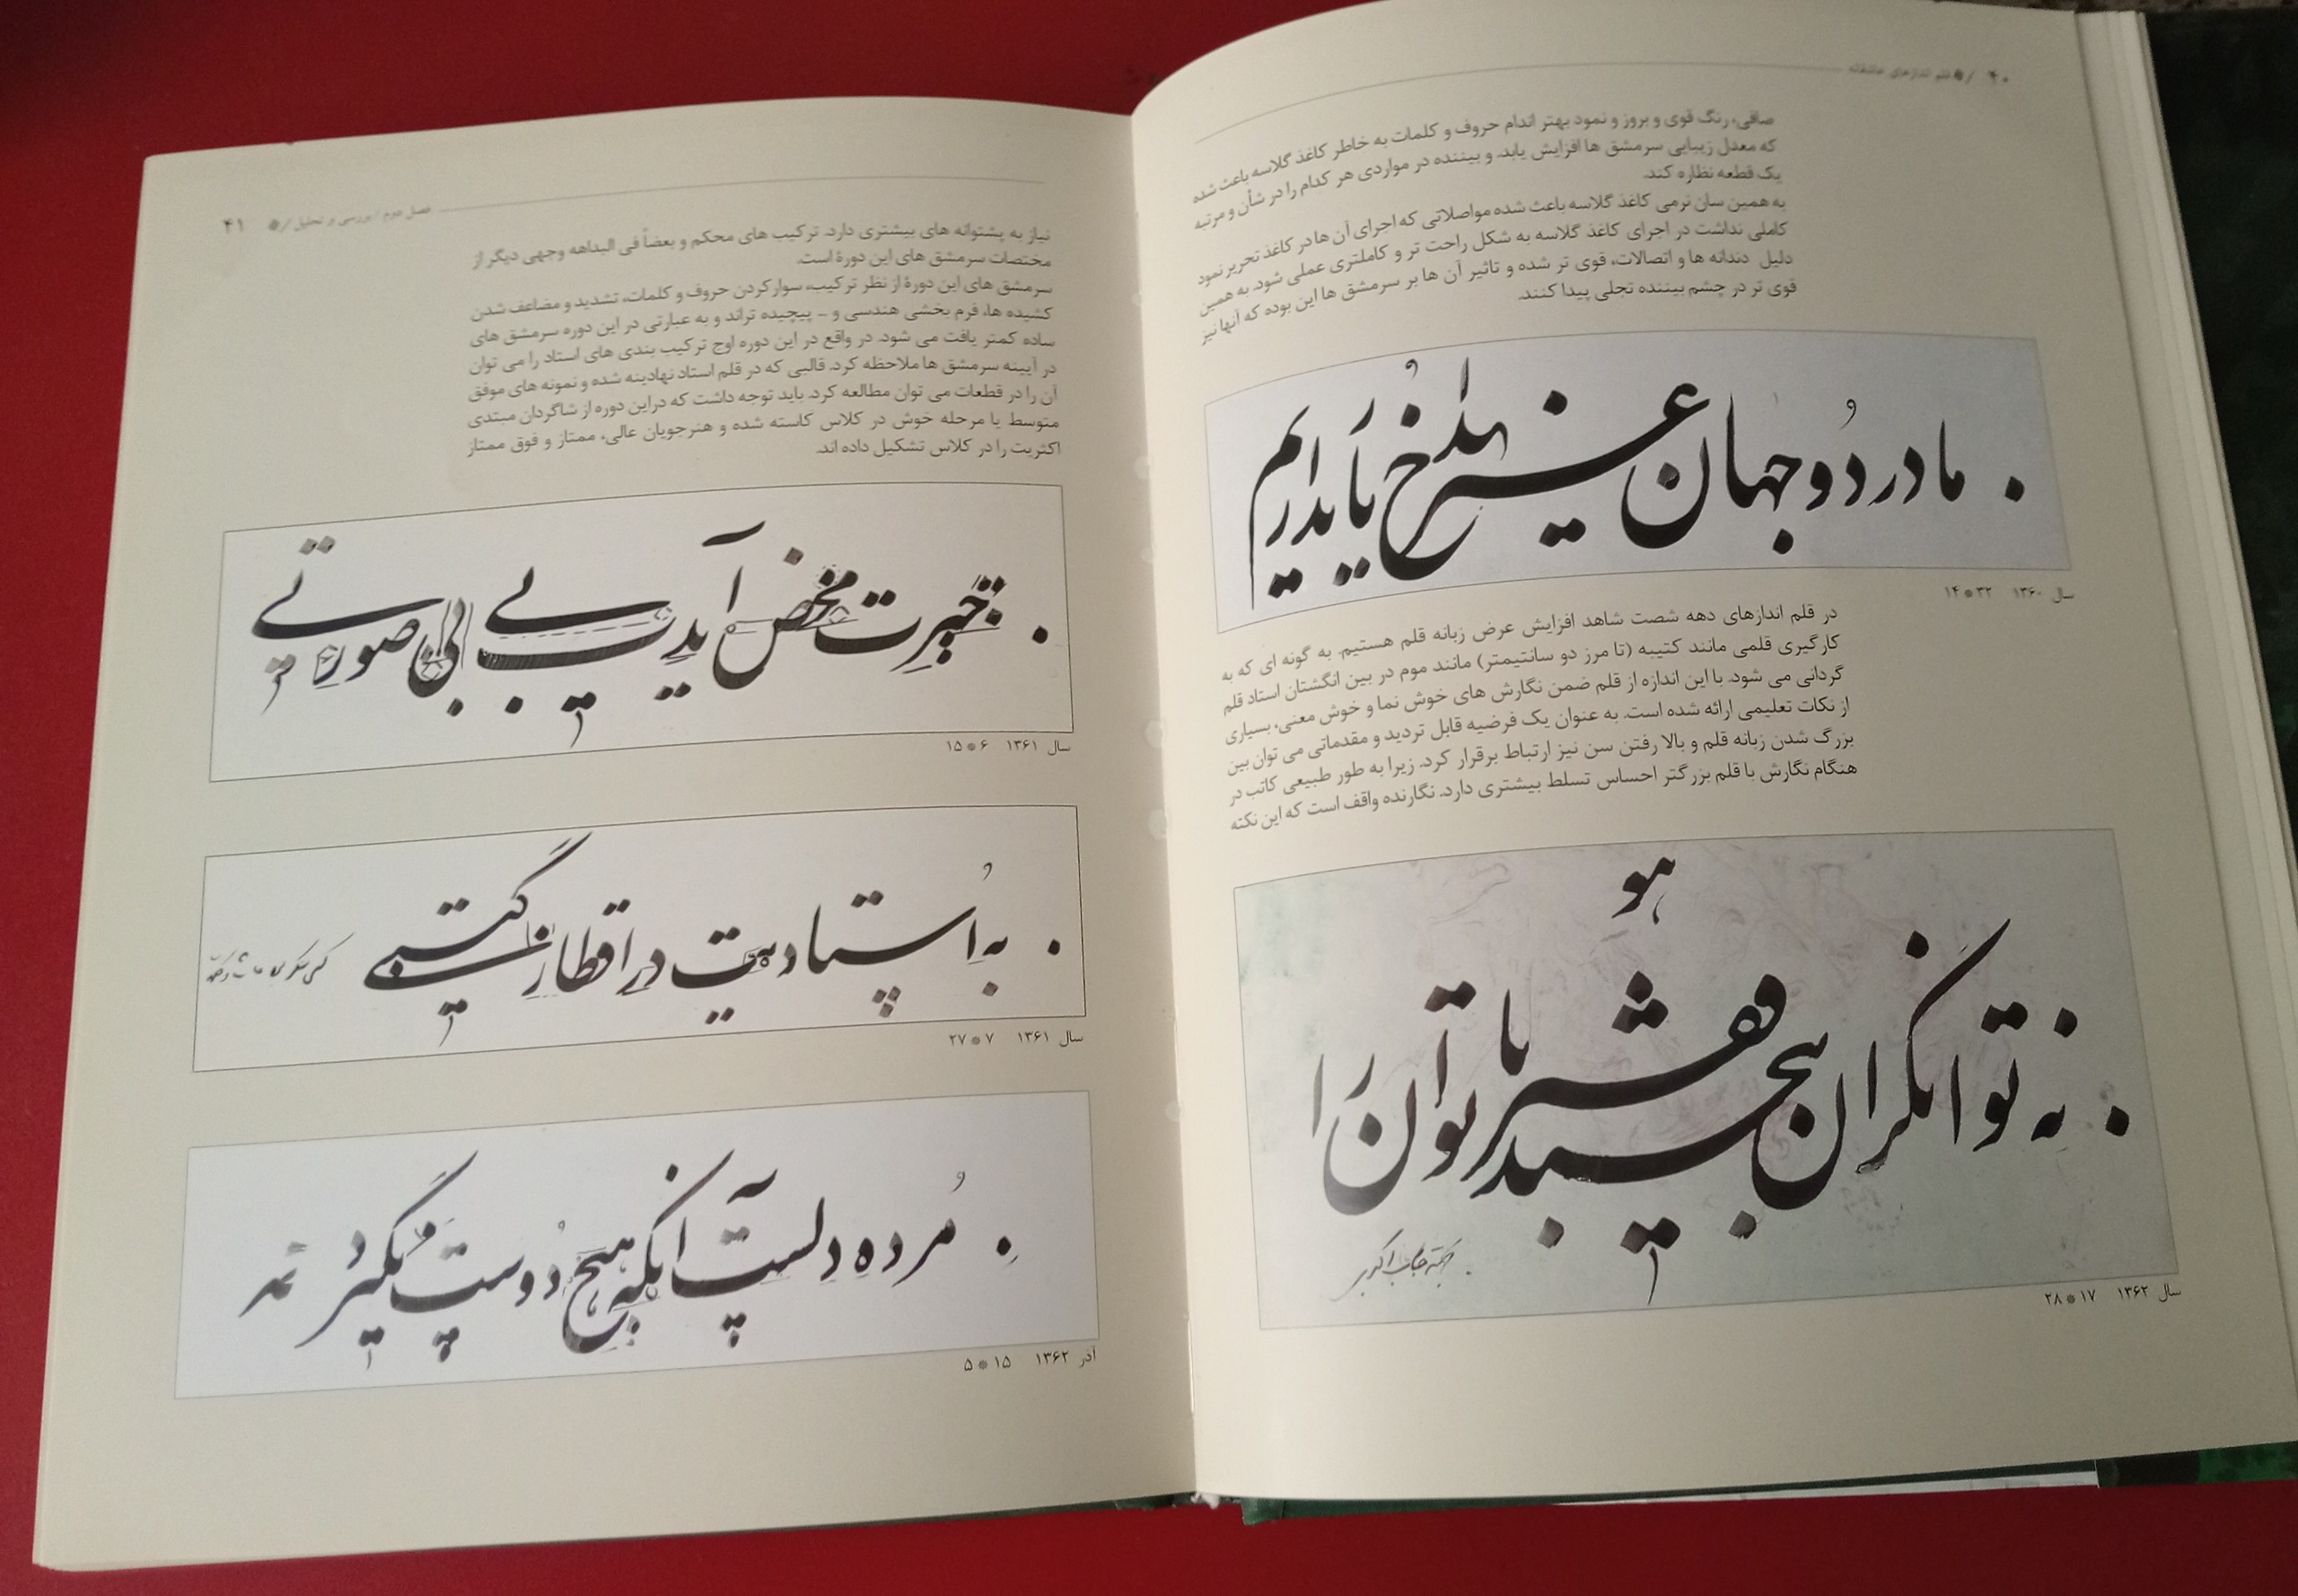 ۴۰ / قلم اندازهای عاشقانه
صافی، رنگ قوی و بروز و نمود بهتر اندام حروف و کلمات به خاطر کاغذ گلاسه باعث شده
که معدل زیبایی سرمشق ها افزایش یابد. و بیننده در مواردی هر کدام را در شأن و مرتبه
یک قطعه نظاره کند.
به همین سان نرمی کاغذ گلاسه باعث شده مواصلاتی که اجرای آن ها در کاغذ تحریر نمود
کاملی نداشت در اجرای کاغذ گلاسه به شکل راحت تر و کاملتری عملی شود. به همین
دلیل دندانه ها و اتصالات، قوی تر شده و تاثیر آن ها بر سرمشق ها این بوده که آنها نیز
قوی تر در چشم بیننده تجلی پیدا کنند.
ما در دو جهان غیر خدا یار نداریم
سال ۱۳۶۰ ۳۲*۱۴
در قلم اندازهای دهه شصت شاهد افزایش عرض زبانه قلم هستیم. به گونه ای که به
کارگیری قلمی مانند کتیبه (تا مرز دو سانتیمتر) مانند موم در بین انگشتان استاد قلم
گردانی می شود. با این اندازه از قلم ضمن نگارش های خوش نما و خوش معنی، بسیاری
از نکات تعلیمی ارائه شده است. به عنوان یک فرضیه قابل تردید و مقدماتی می توان بین
بزرگ شدن زبانه قلم و بالا رفتن سن نیز ارتباط برقرار کرد. زیرا به طور طبیعی کاتب در
هنگام نگارش با قلم بزرگتر احساس تسلط بیشتری دارد. نگارنده واقف است که این نکته
هو
نه توانگران ببخشید فقیر ناتوان را
سال ۱۳۶۲ ۱۷*۲۸
فصل دوم / بررسی و تحلیل / ۴۱
نیاز به پشتوانه های بیشتری دارد. ترکیب های محکم و بعضاً فی البداهه وجهی دیگر از
مختصات سرمشق های این دورهٔ است.
سرمشق های این دورهٔ از نظر ترکیب، سوار کردن حروف و کلمات، تشدید و مضاعف شدن
کشیده ها، فرم بخشی هندسی و - پیچیده تراند و به عبارتی در این دوره سرمشق های
ساده کمتر یافت می شود. در واقع در این دوره اوج ترکیب بندی های استاد را می توان
در آیینه سرمشق ها ملاحظه کرد. قالبی که در قلم استاد نهادینه شده و نمونه های موفق
آن را در قطعات می توان مطالعه کرد. باید توجه داشت که در این دوره از شاگردان مبتدی
متوسط یا مرحله خوش در کلاس کاسته شده و هنرجویان عالی، ممتاز و فوق ممتاز
اکثریت را در کلاس تشکیل داده اند.
حیرت محض آیدت بی صورتی
سال ۱۳۶۱ ۶*۱۵
به استادیت در اقطار گیتی
سال ۱۳۶۱ ۷*۲۷
مرده دلست آنکه هیچ دوست نگیرد
آذر ۱۳۶۲ ۱۵*۵